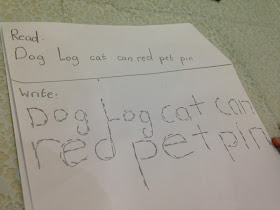 Read:
Dog Log cat can red pet pin
Write:
Dog Log cat can
red pet pin